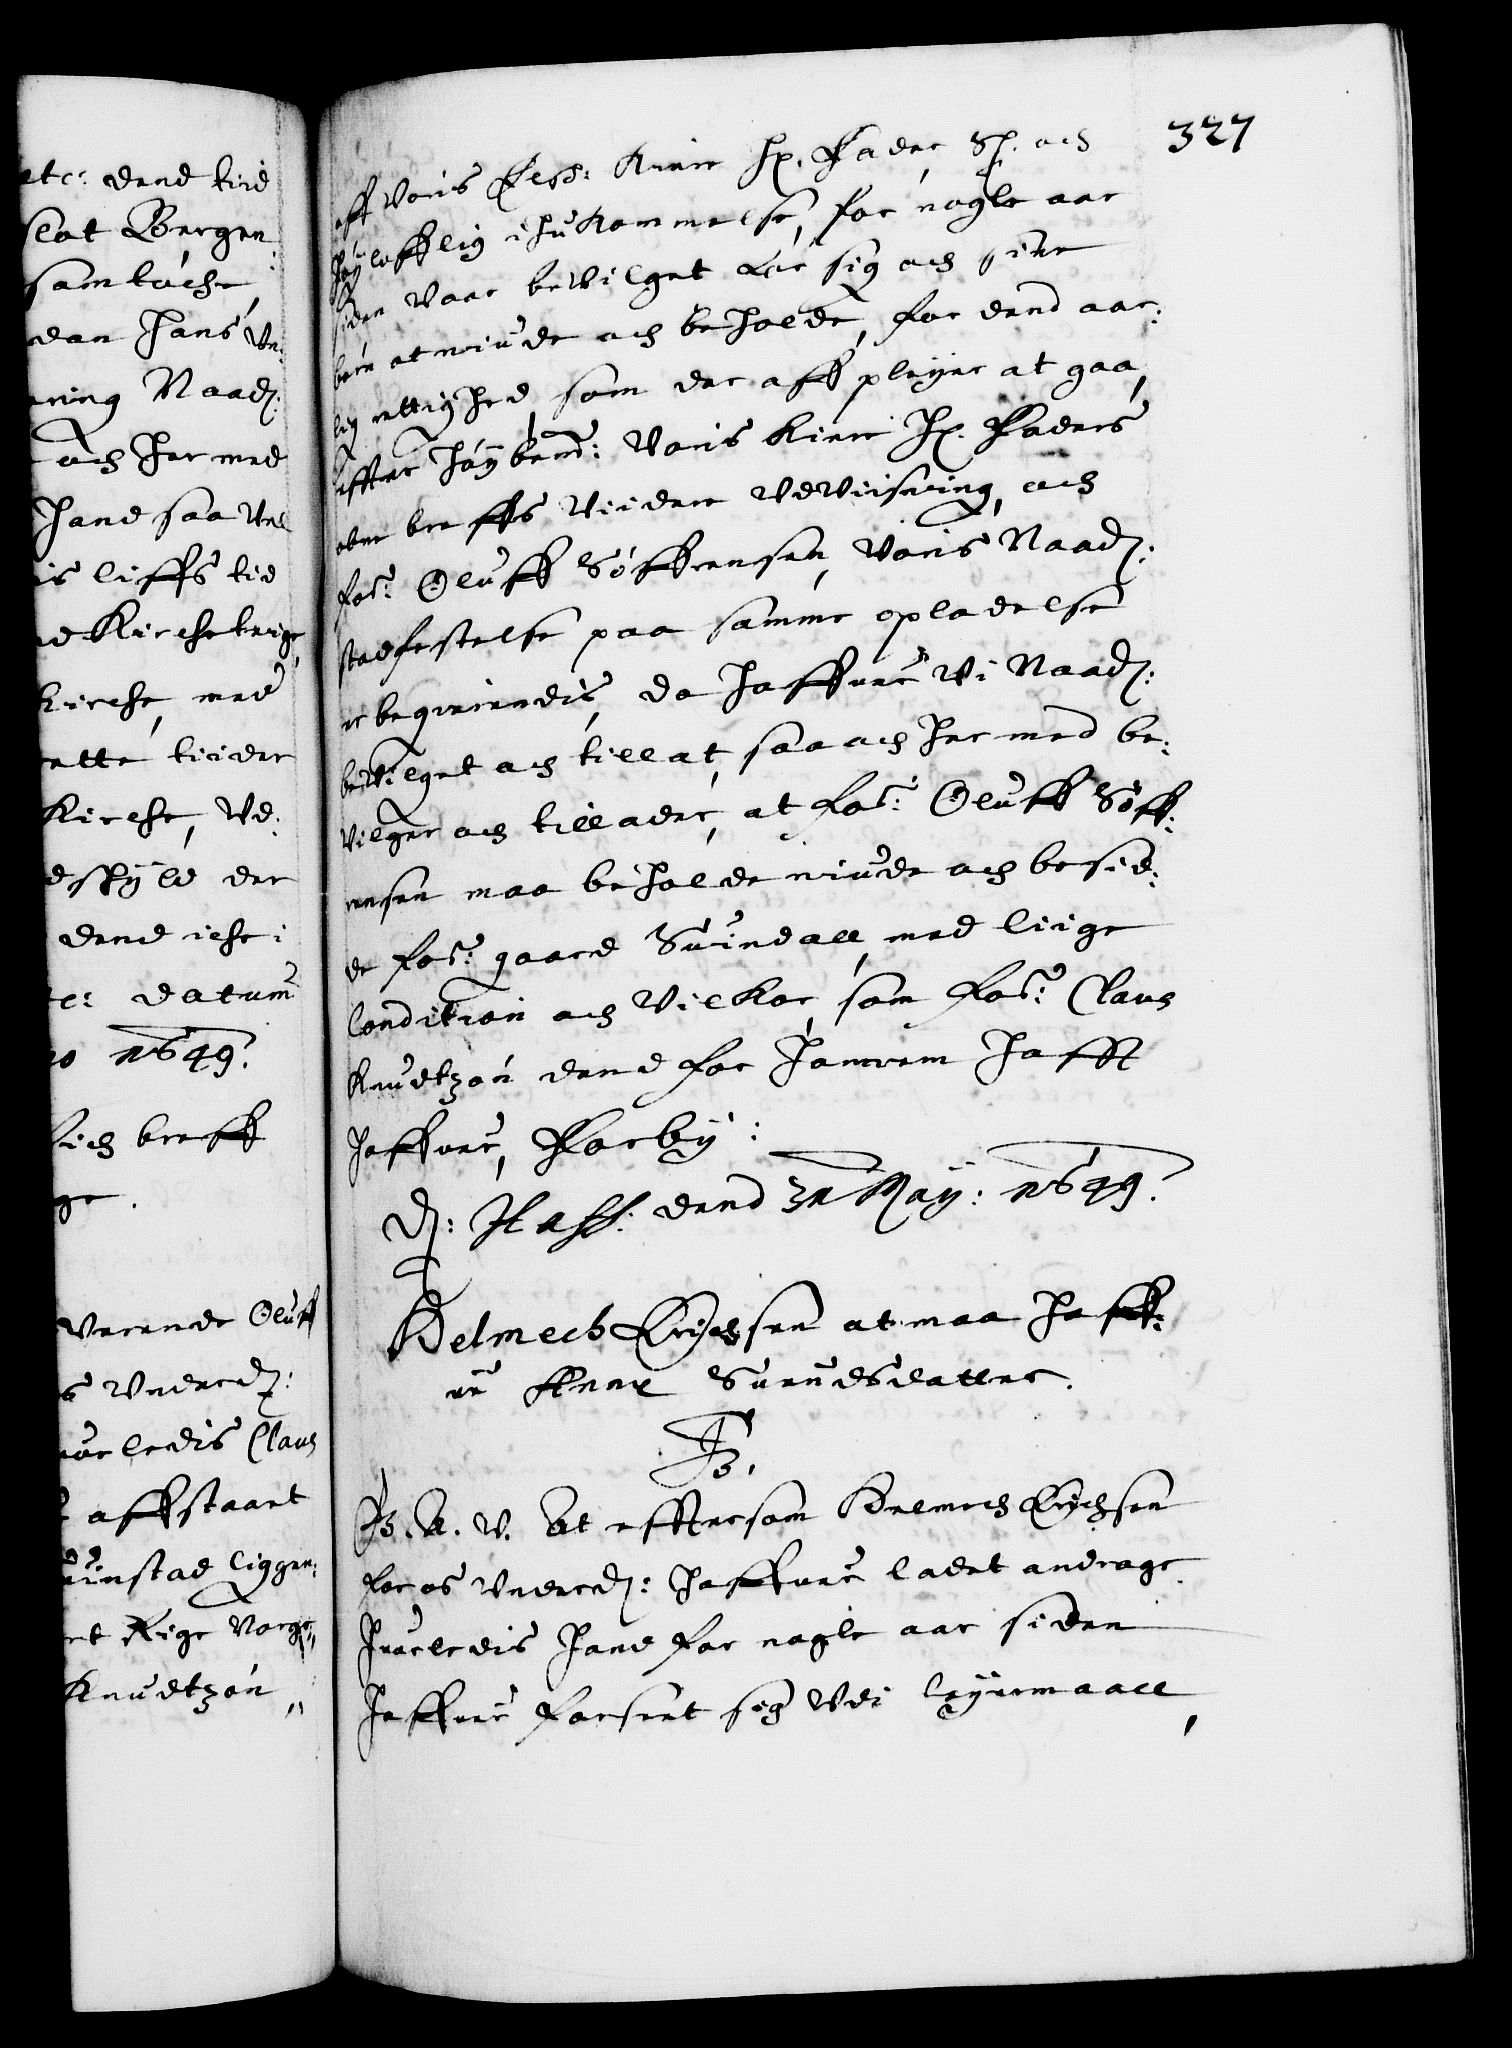 etc: dend tiid
slot Bergen
samtøche
dan hans Un:
ring Naad:
och her med
hand saa vel
is liffs tid
d Kircketiige
kircke, med
rette tiider
Kircke, Ud:
dskyld der
dend icke i
c: datum
o 1649.
lich breff
ge.
Værende Oluff
s Underd:
uorledis Claus
affstaaet
unstad liggen:
rt Rige Norge
Knudtzøn
327
aff Voris Elsk: Kiere Hr. Fader, S: och
høylofflig ihukommelse, for nogle aar
siden vaar bevilget for sig och sine
børn at niude och beholde, for dend aar:
lig rettighed, som der aff pleyer at gaa,
effter høybemt: Voris Kiere Hr. Faders
obne breffs Viidere Udviisning, och
for: Oluff Søffrensen, Voris Naad:
stadfestelse paa samme opladelse
er begierendis, da haffuer Vi Naad:
bevilget och tillat, saa och her med be:
vilger och tillader, at for: Oluff Søff:
rensen maa beholde niude och besid:
de for: gaard Suindall, med liige
Condition och Vilkor, som for: Claus
Knudtzøn dend for hannem hafft
haffuer, Forby:
D: Haff: dend 31 May: 1649.
Helmech Erichsen at maa haff:
ue Anne Suendsdatter.
F3.
F3. A. V. At effttersom Helmech Erichsen
for os Underd: haffuer ladet andrage
huorledis hand for nogle aar siden
haffuer forseet sig Udi leyermaall,